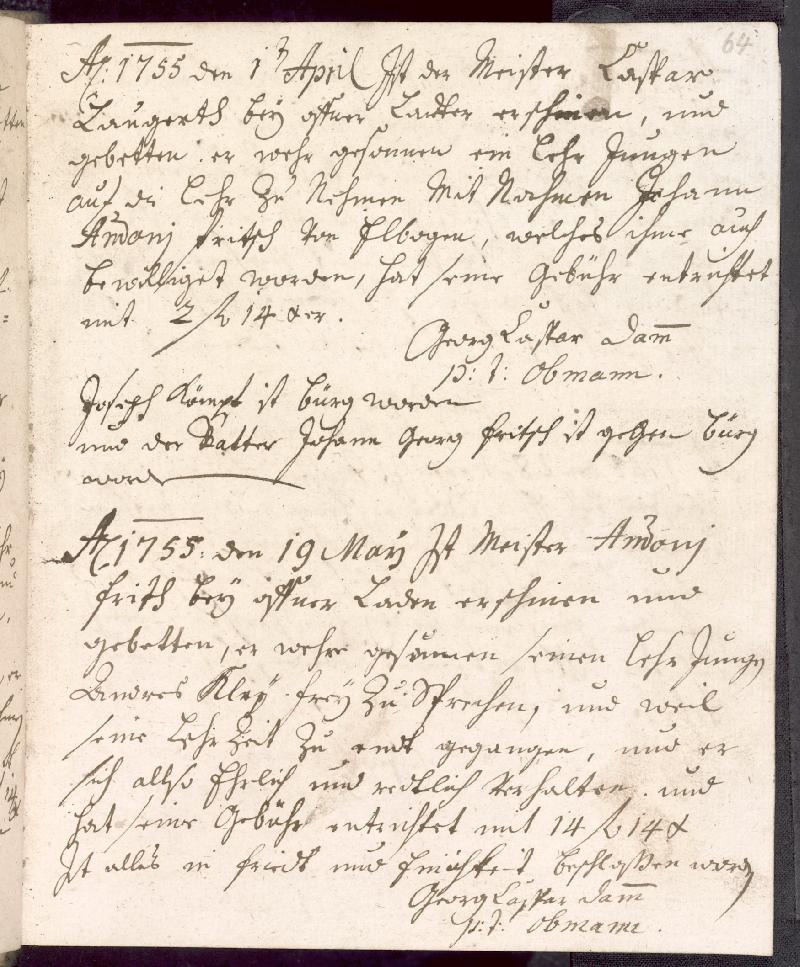 64
Aõ: 1755 den 1t April Ist der Meister Caspar
Laugerth bey offner Ladter erschinen, und
gebetten. er wehr gesonnen ein Lehr Jungen
auf die Lehr zu Nehmen Mit Nahmen Johann
Andonj fritsch von Elbogen, welches ihme auch
bewilliget worden, hat seine Gebühr entrichtet
mit 2 fl 14 xer.
Georg Caspar Dam̅
p: t: Obmann.
Joseph Kömpf ist bürg worden
und der Vatter Johann Georg fritsch ist gegen bürg
word
Aõ 1755: den 19 Maÿ Ist Meister Andonj
frisch beÿ offner Laden erschinen und
gebetten, er wehre gesonnen seinen Lehr Jungen
Andres Kleÿ freÿ zu Sprechen, und weil
seine Lehr Zeit zu endt gegangen, und er
sich allso Ehrlich und redtlich verhalten. und
hat seine Gebühr entrichtet mit 14 fl 14 x
Ist alles in friedt und Einichkeit beschlossen word
Georg Caspar Dam̅
p: t: Obmann.